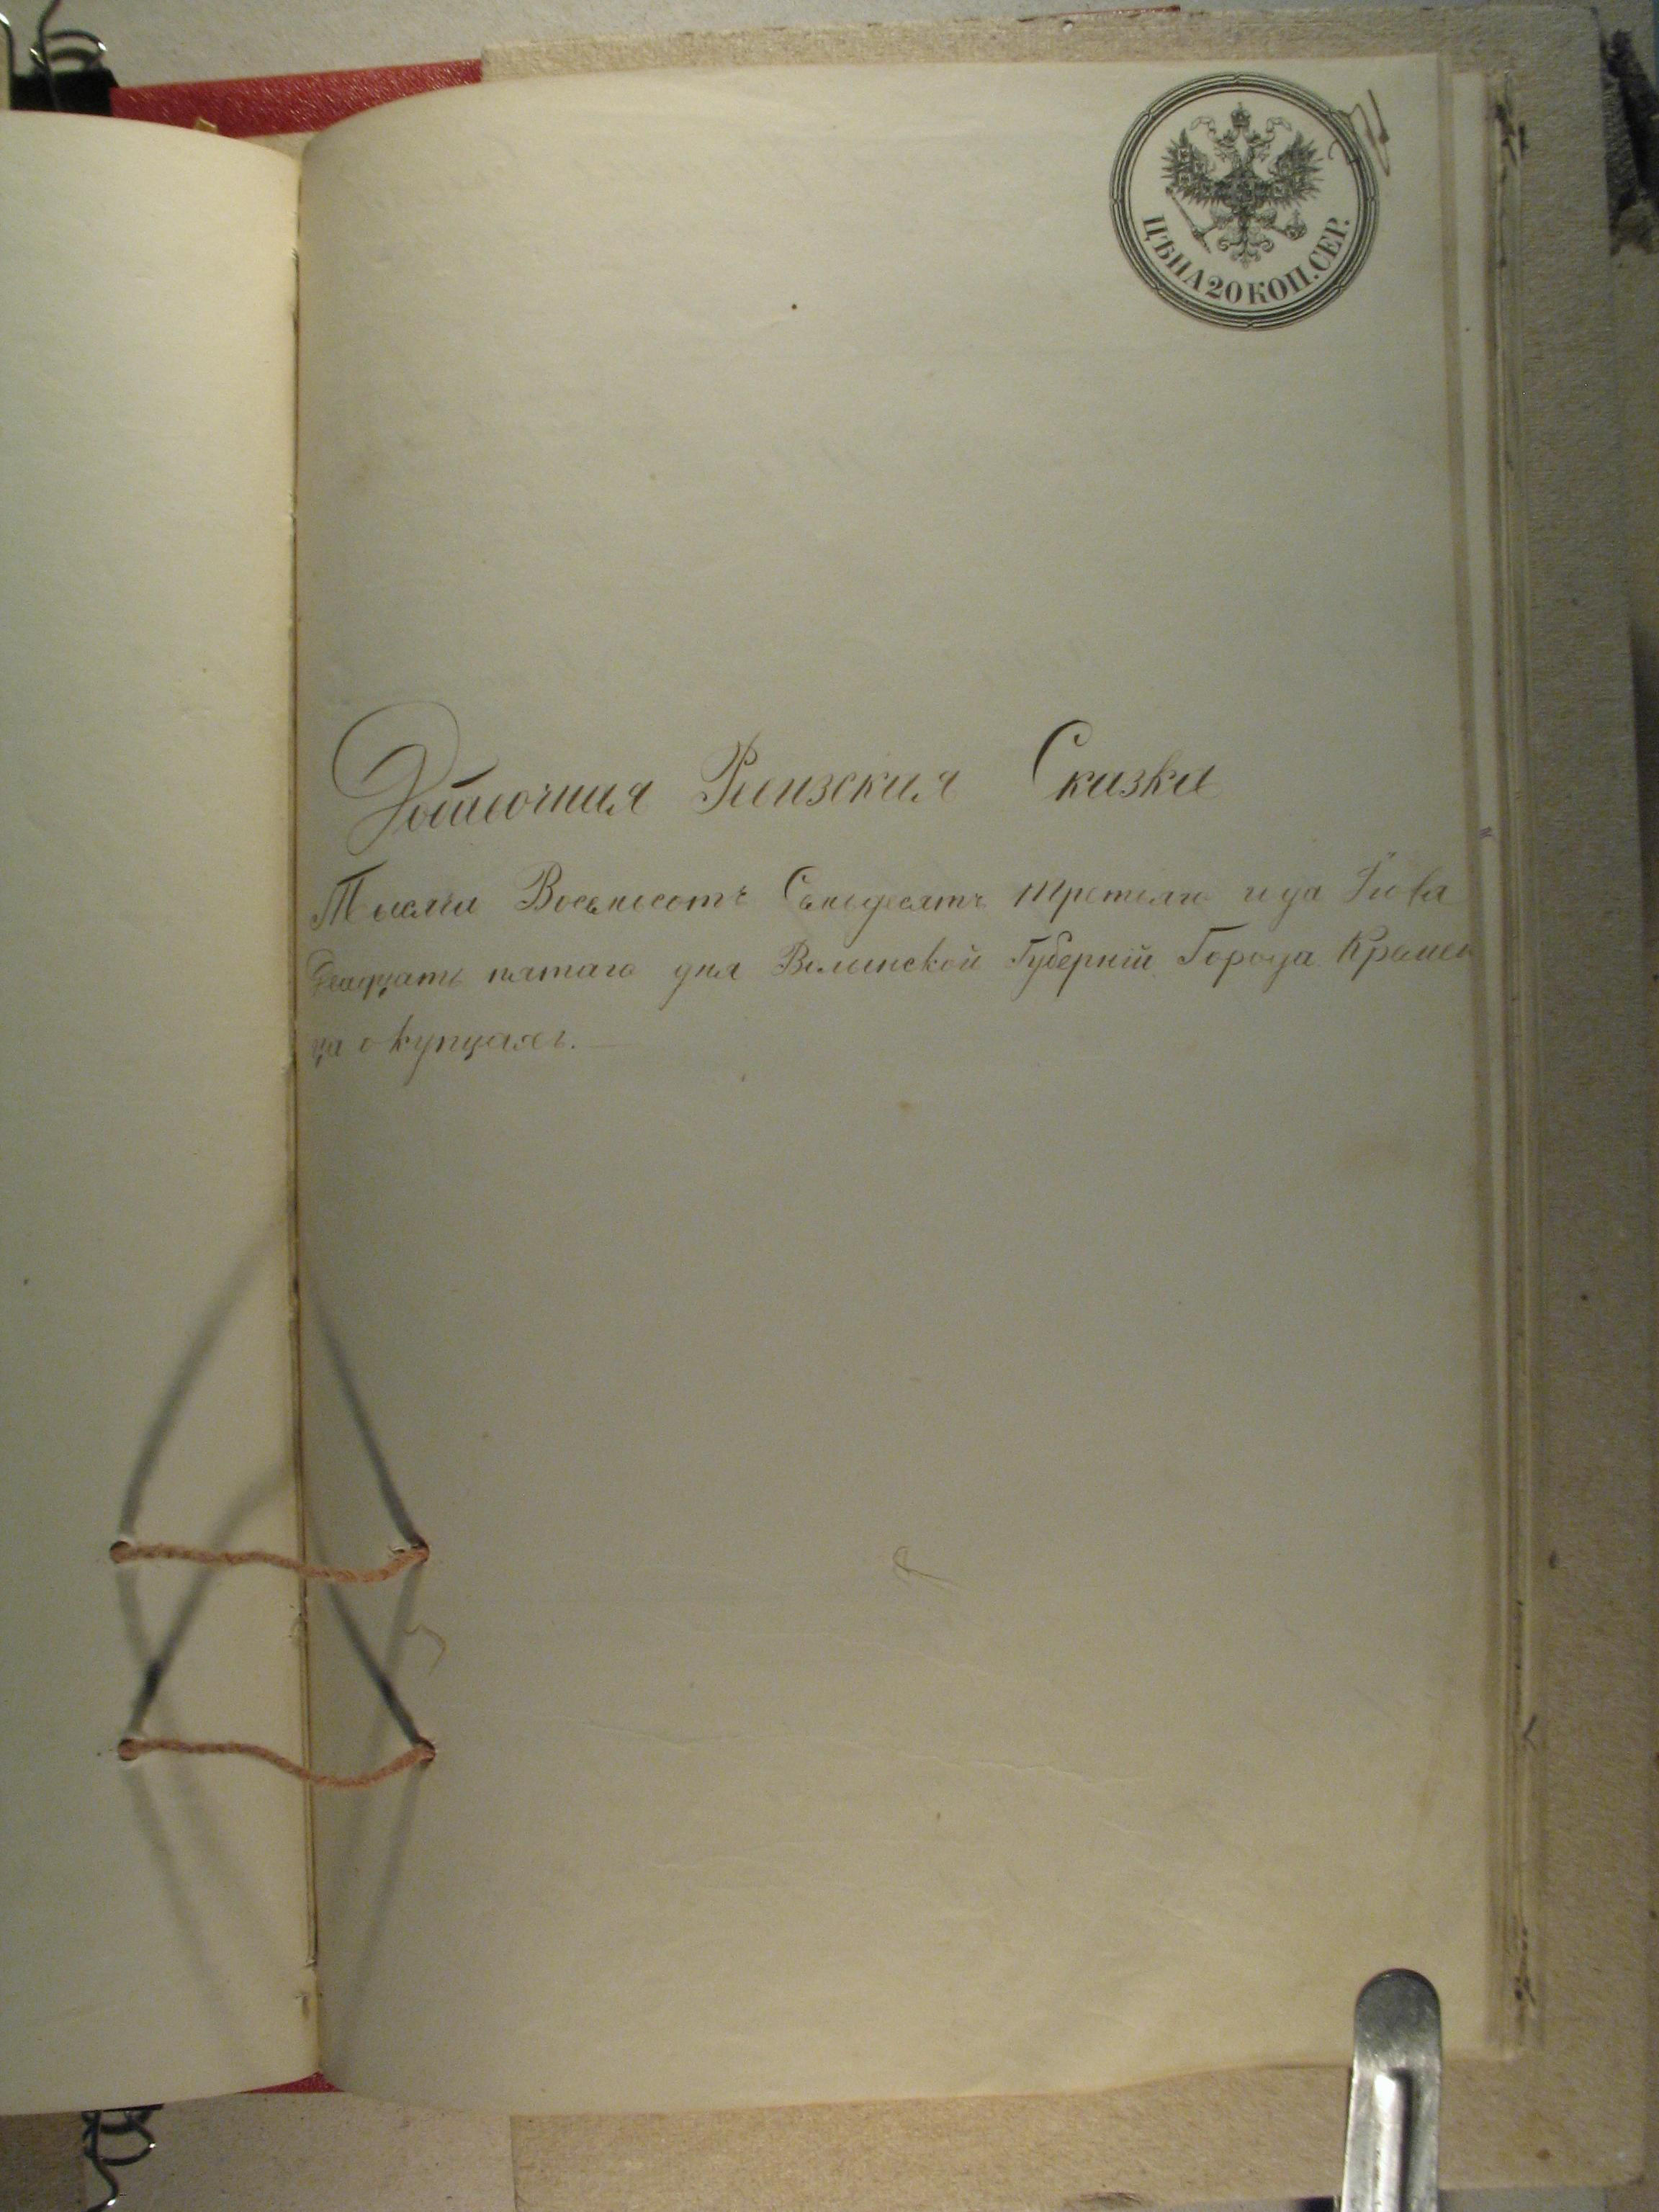 ЦѢНА 20 КОП. СЕР.
Добавочная Ревизская Сказка
Тысяча Восемьсотъ Семьдесятъ третьяго года
двадцать пятаго дня Волынской Губерніи Города Кремен
ца о купцахъ.